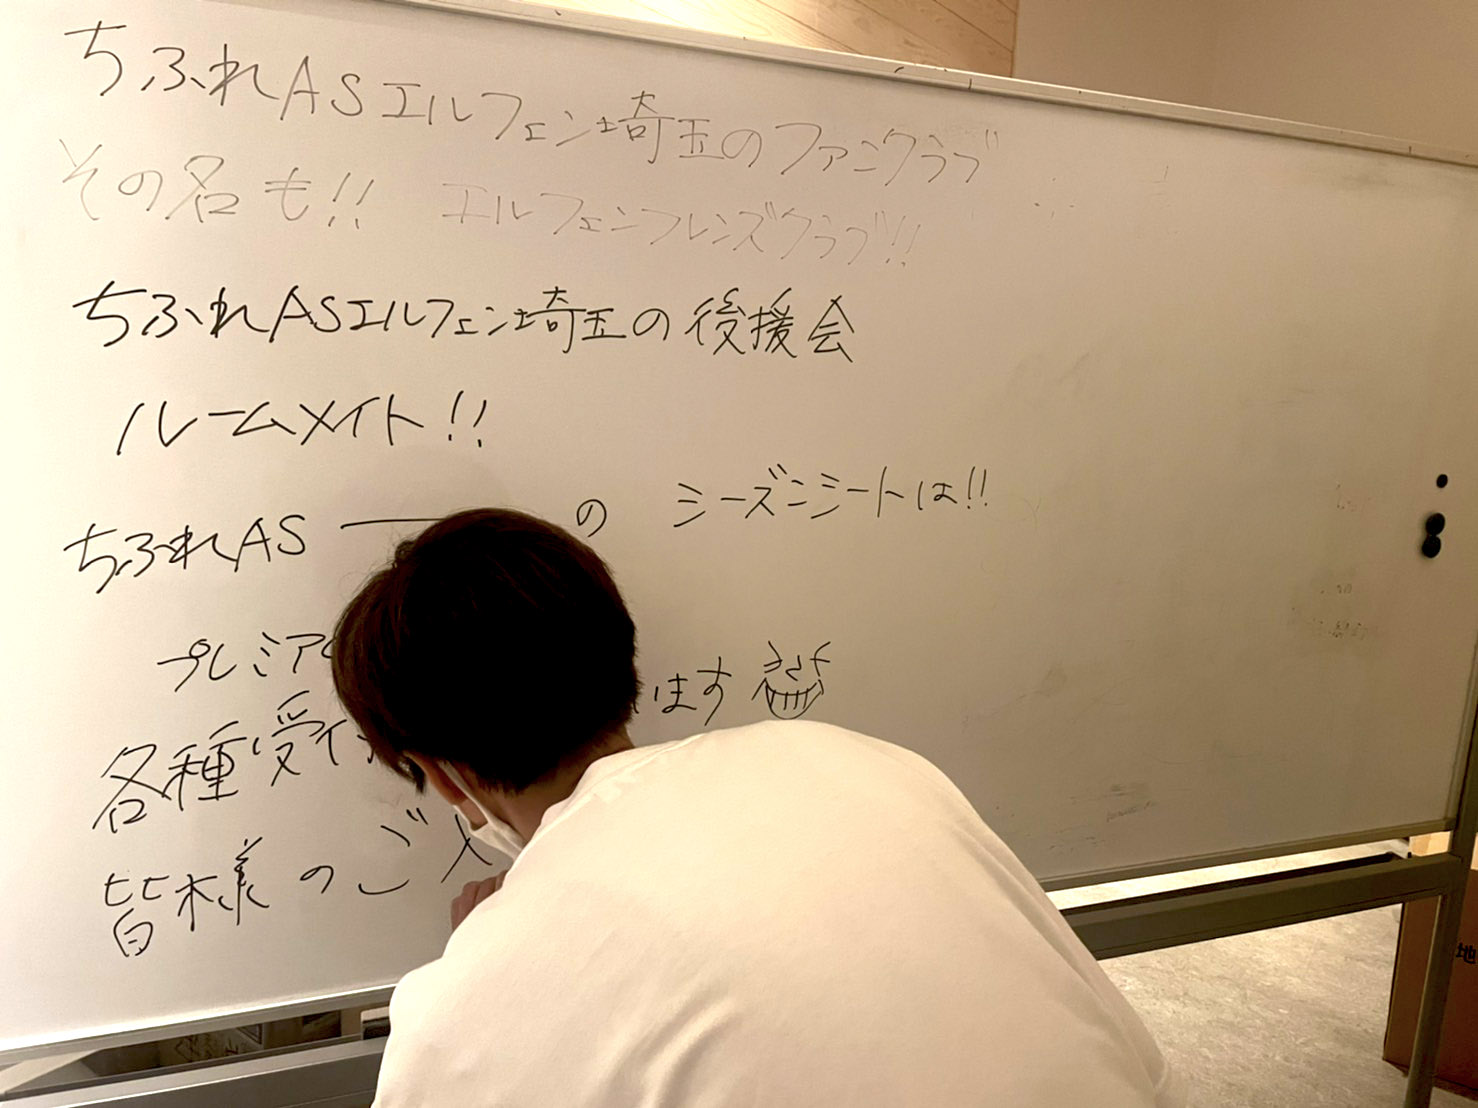 ちふれASエルフェン埼玉のファンクラブ
その名も!! エルフェンフレンズクラブ!!
ちふれASエルフェン埼玉の後援会
ルームメイト!!
ちふれAS ── の シーズンシートは!!
プレミア
ます
各種受付
皆様のご
地